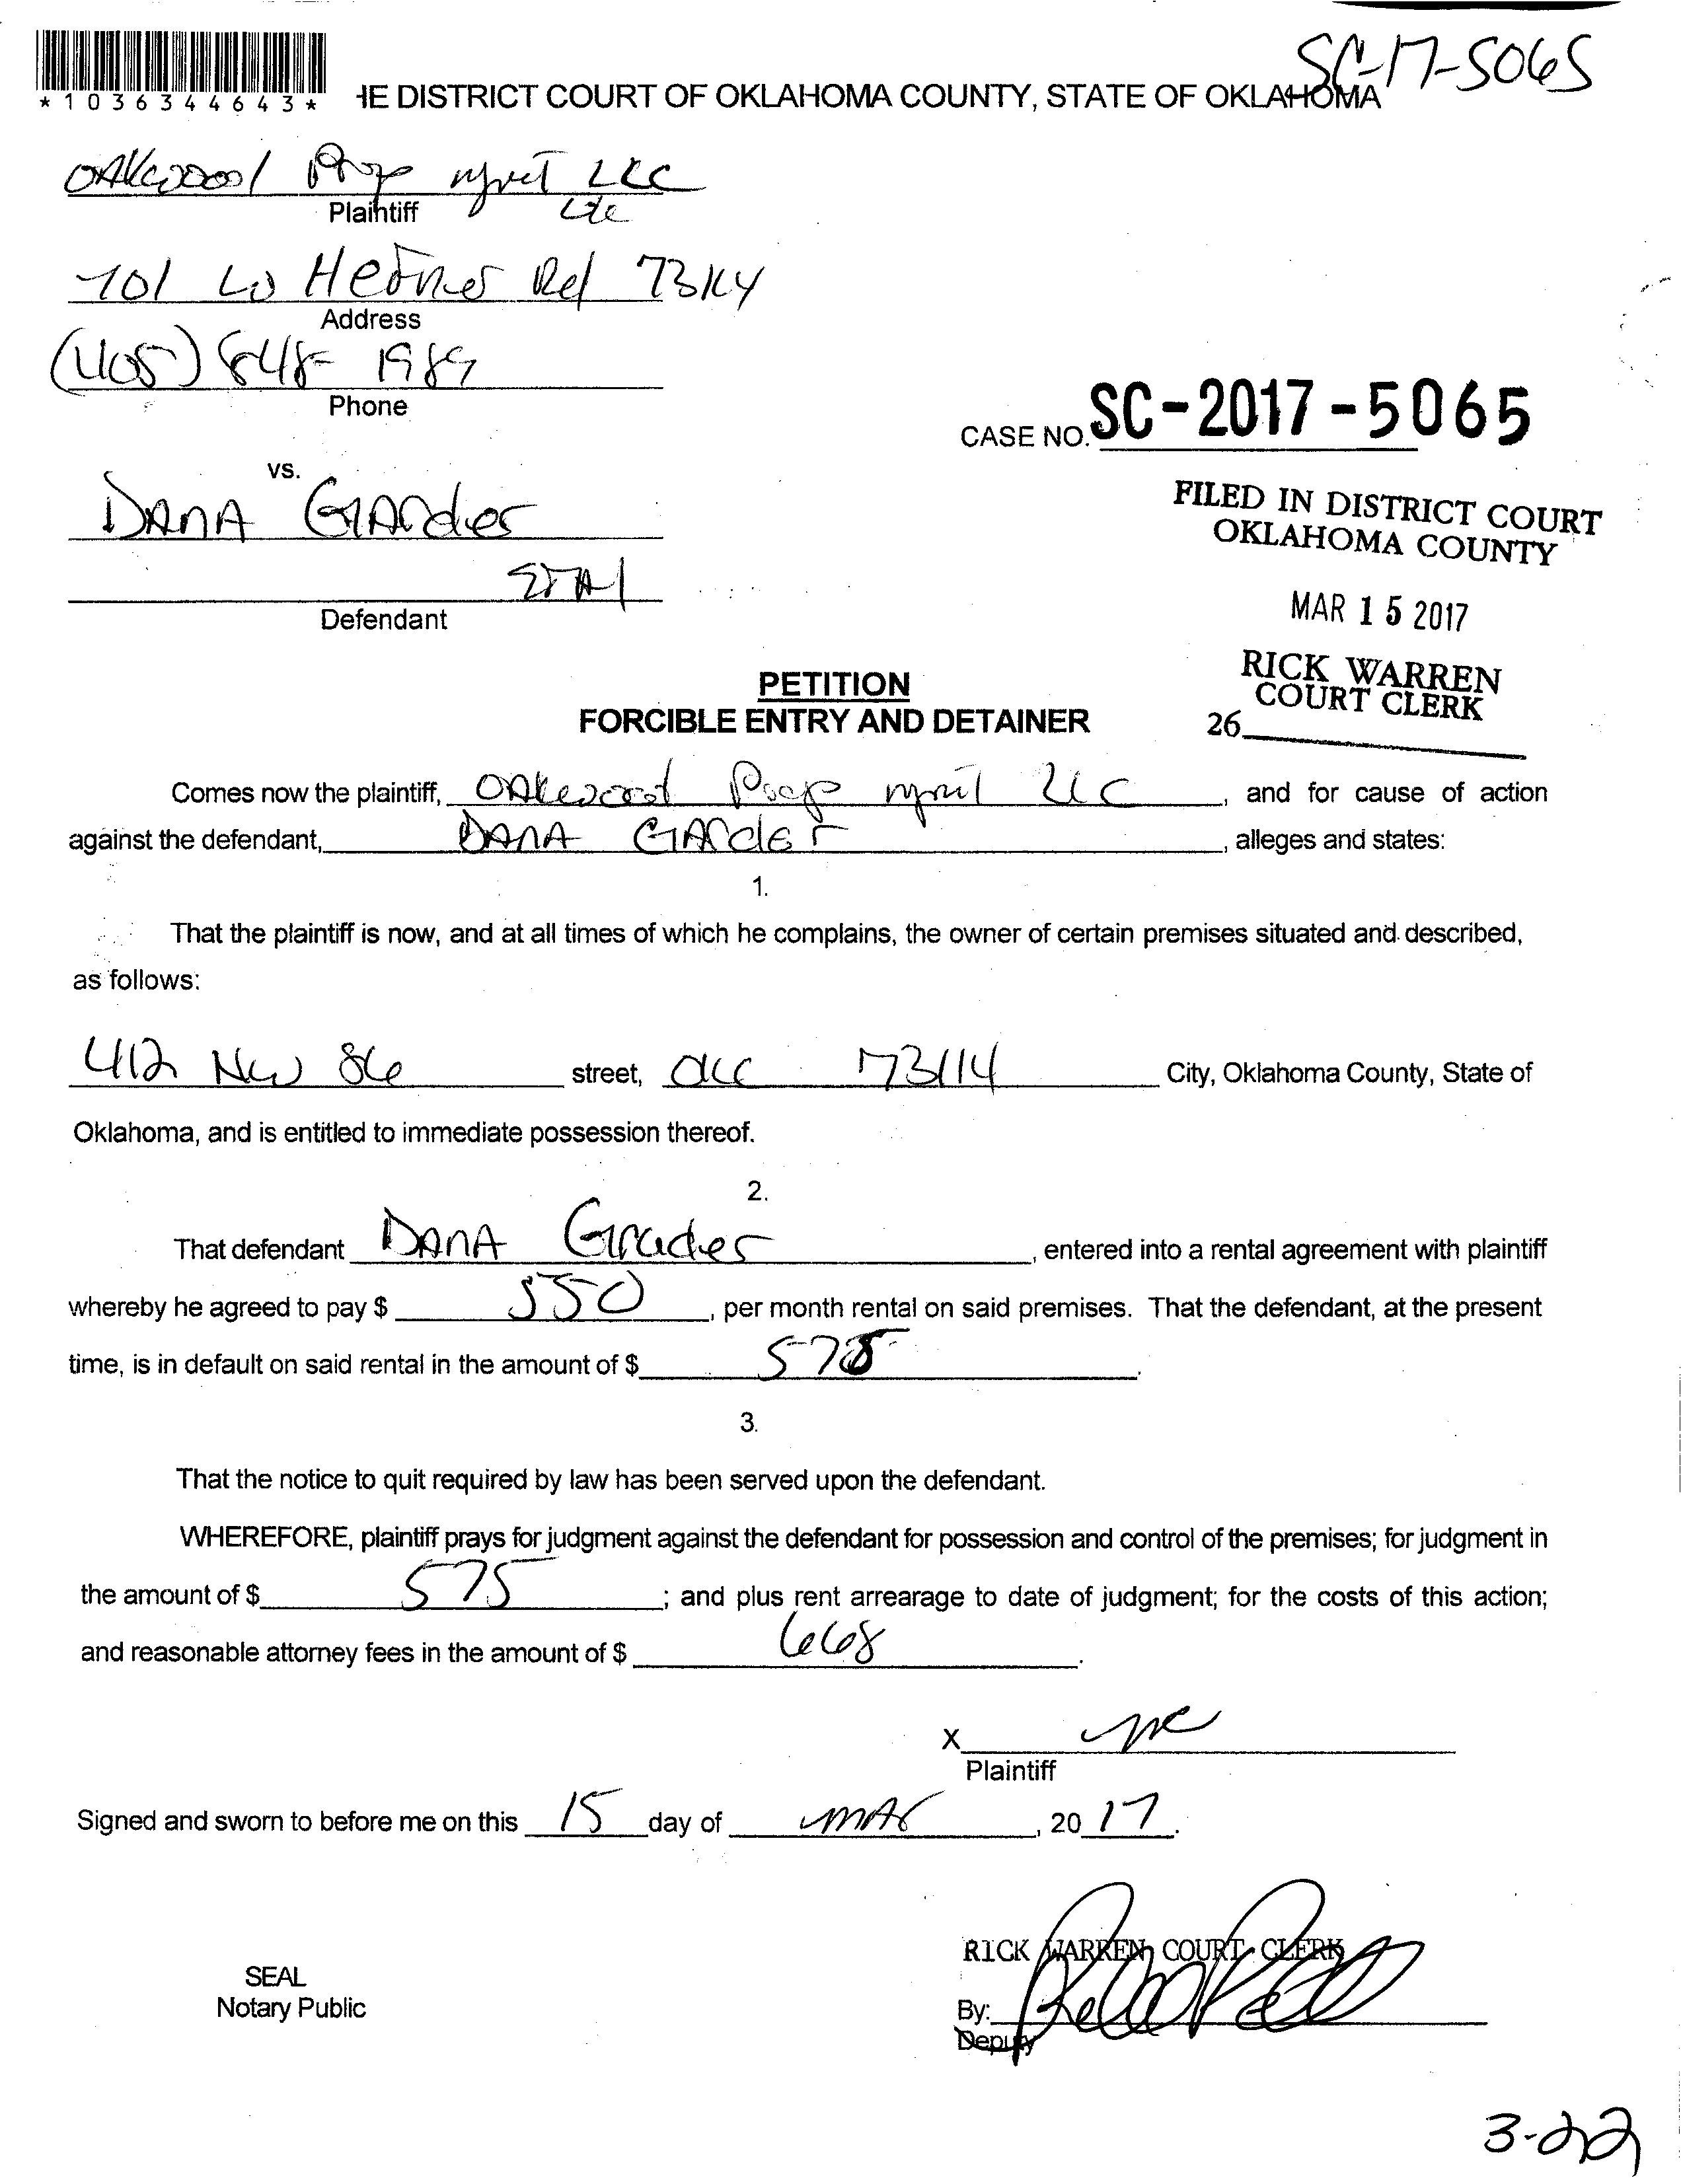 SC-17-5065
*1036344643* HE DISTRICT COURT OF OKLAHOMA COUNTY, STATE OF OKLAHOMA
OAKwood Prop mgmt LLC
Plaintiff
701 W Hefner Rd 73114
Address
(405) 848-1989
Phone
CASE NO. SC-2017-5065
vs.
DANA GArder
FILED IN DISTRICT COURT
OKLAHOMA COUNTY
ETAl
Defendant
MAR 15 2017
RICK WARREN
COURT CLERK
26
PETITION
FORCIBLE ENTRY AND DETAINER
Comes now the plaintiff, OAkwood Prop mgmt LLC, and for cause of action
against the defendant, DANA GArder, alleges and states:
1.
That the plaintiff is now, and at all times of which he complains, the owner of certain premises situated and described,
as follows:
412 NW 86 street, OKC 73114 City, Oklahoma County, State of
Oklahoma, and is entitled to immediate possession thereof.
2.
That defendant DANA, entered into a rental agreement with plaintiff
whereby he agreed to pay $ 550, per month rental on said premises. That the defendant, at the present
time, is in default on said rental in the amount of $ 575.
3.
That the notice to quit required by law has been served upon the defendant.
WHEREFORE, plaintiff prays for judgment against the defendant for possession and control of the premises; for judgment in
the amount of $ 575; and plus rent arrearage to date of judgment; for the costs of this action;
and reasonable attorney fees in the amount of $ 668.
X
Plaintiff
Signed and sworn to before me on this 15 day of mAr, 20 17.
RICK WARREN COURT CLERK
SEAL
Notary Public
By:
Deputy
3-22